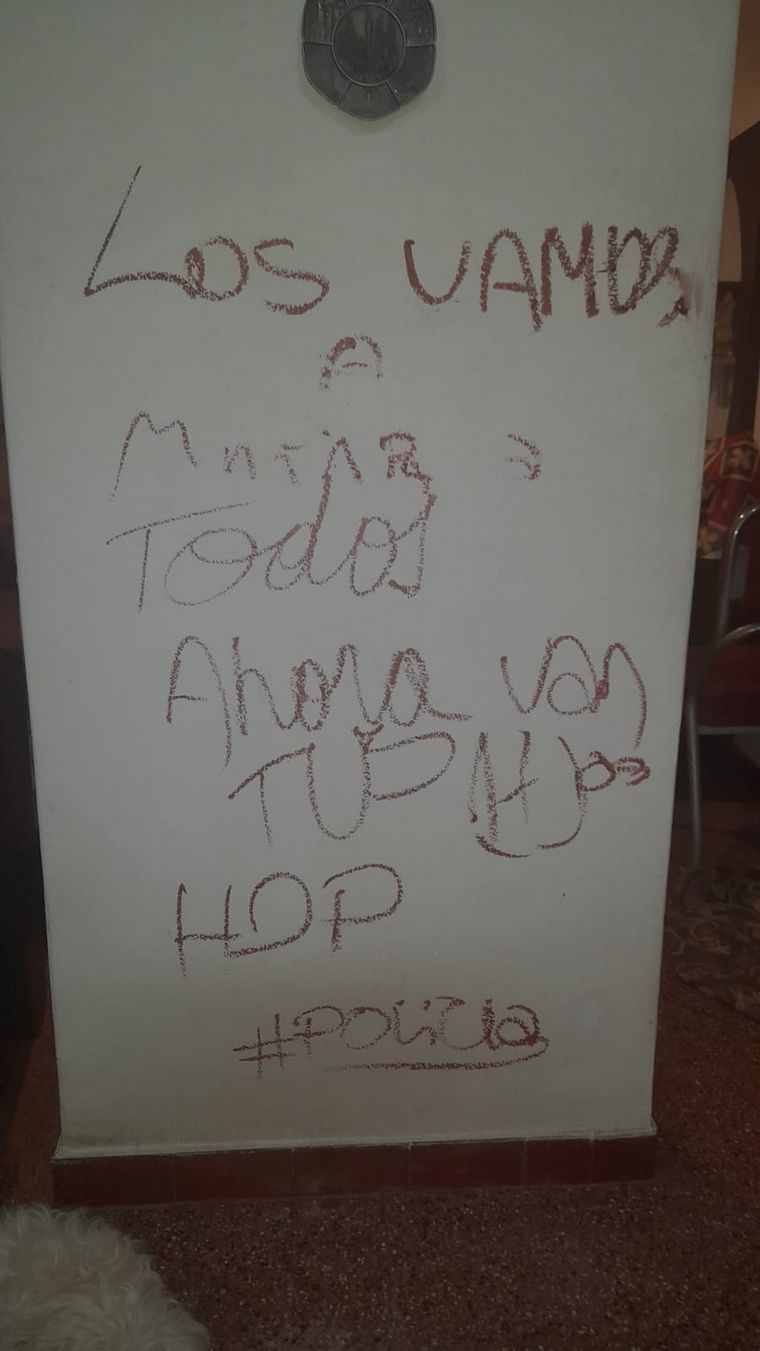 LOS VAMOS
A
MATAR a
Todos
Ahora van
TUS Hijos
HDP
#POLICIA